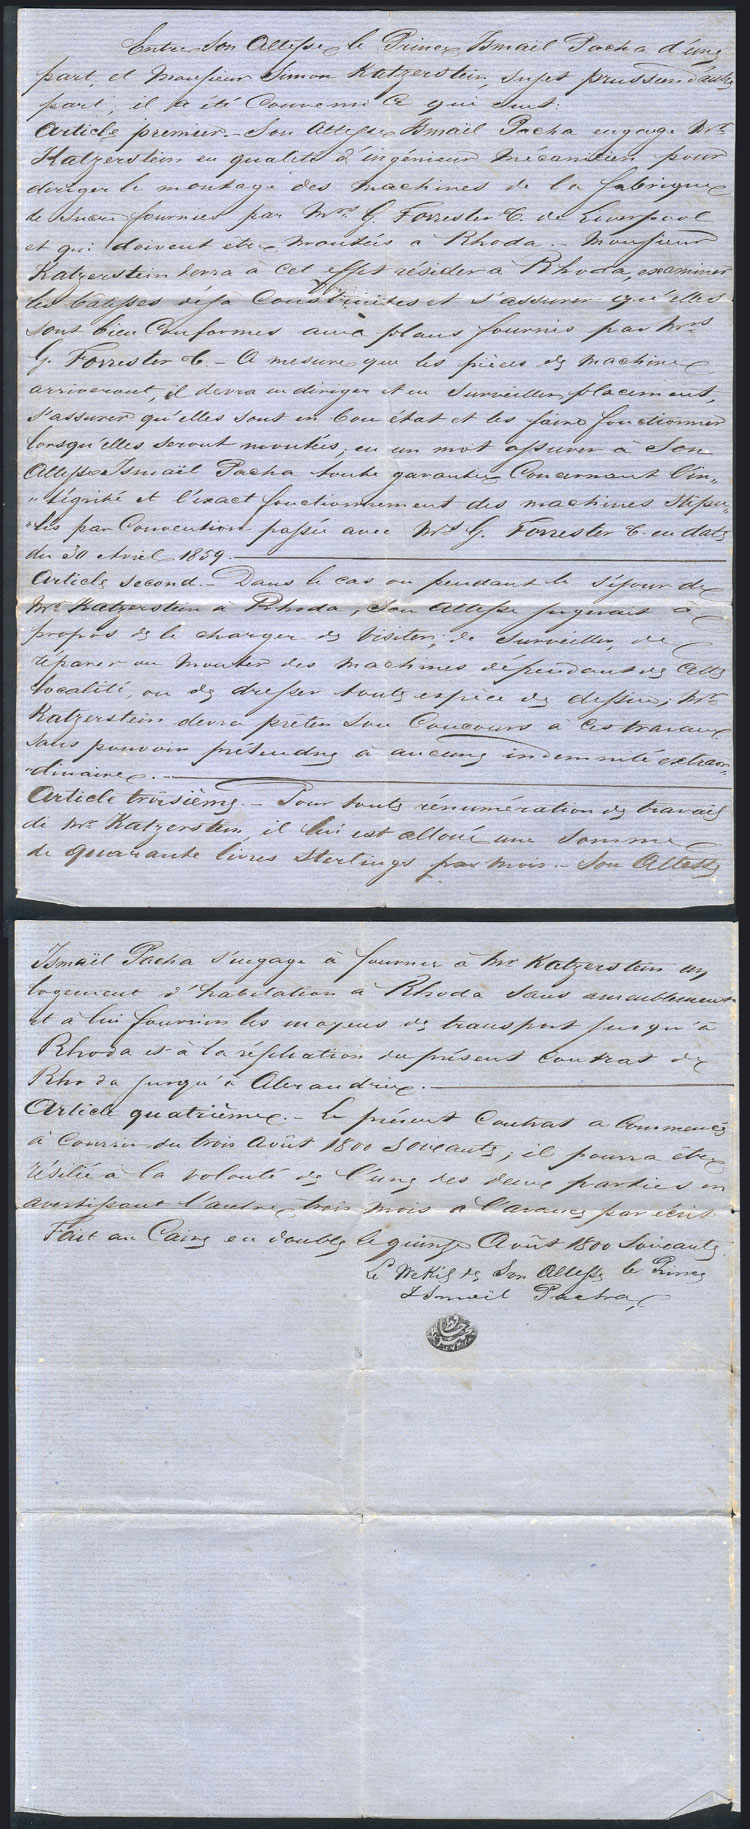 Entre Son Altesse le Prince Ismaïl Pacha d'une
part, et Monsieur Simon Katzerstein, sujet prussien d'autre
part, il a été Convenu Ce qui suit:
Article premier. – Son Altesse Ismaïl Pacha engage Mr.
Katzerstein en qualité d'ingénieur Mécanicien pour
diriger le montage des Machines de la fabrique
de Sucre fournies par Mrs. G. Forrester C. de Liverpool
et qui doivent etre Montées à Rhoda. – Monsieur
Katzerstein devra à cet effet résider à Rhoda, examiner
les batisses déjà Construites et s'assurer qu'elles
sont bien Conformes aux plans fournis par Mrs
G. Forrester C – A mesure que les pièces de Machine
arriveront, il devra en diriger et en Surveiller placement,
s'assurer qu'elles sont en bon état et les faire fonctionner
lorsqu'elles seront montées, en un mot assurer à Son
Altesse Ismaïl Pacha toute garantie Concernant l'in„
„tégrité et l'exact fonctionnement des machines Stipu„
„lés par Convention passée avec Mrs G. Forrester C. en date
du 30 Avril 1859.
Article second. – Dans le cas ou pendant le Séjour de
Mr. Katzerstein à Rhoda, Son Altesse jugerait à
propos de le charger de Visiter, de Surveiller, de
réparer ou Monter des Machines dependant de Cette
localité, ou de dresser toute espèce de dessin, Mr.
Katzerstein devra prêter son Concours à Ces travaux
sans pouvoir prétendre à aucune indemnité extraor„
„dinaire.
Article troisième. – Pour toute rénumération de travail
de Mr. Katzerstein, il lui est alloué une Somme
de quarante livres Sterlings par Mois. – Son Altesse
Ismaïl Pacha s'engage à fournir à Mr Katzerstein un
logement d'habitation à Rhoda Sans ameublement
et à lui fournir les moyens de transport jusqu'à
Rhoda et à la résiliation du présent Contrat de
Rhoda jusqu'à Alexandrie.
Article quatrième. – Le présent Contrat a Commencé
à Courrir du trois Août 1800 Soixante; il pourra être
résilié à la volonté de l'une des deux parties en
avertissant l'autre trois mois à l'avance par écrit
Fait au Caire en double le quinze Août 1800 Soixante.
Le Wekil de Son Altesse le Prince
Ismaïl Pacha